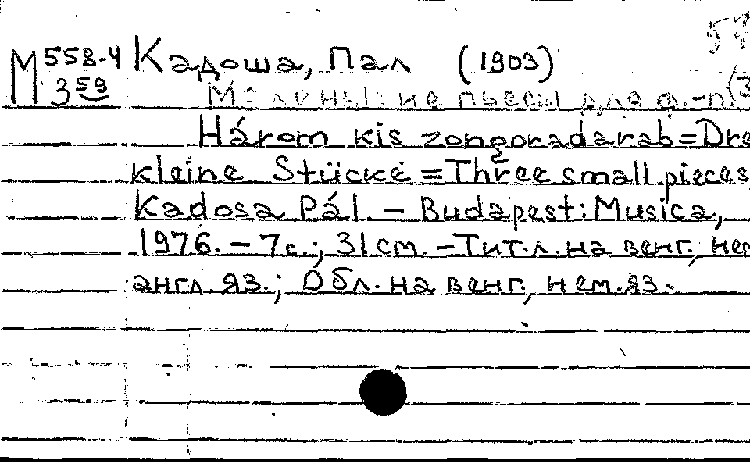 М 558-4 Кадоша, Пал (1903)
3 59 Маленькие пьесы для ф.-п. (3
Három kis zongoradarab = Dre
kleine Stücke = Three small pieces
Kadosa Pál. - Budapest: Musica,
1976. - 7 с.; 31 см. - Тит. л. на венг., нем
англ. яз.; Обл. на венг., нем. яз.